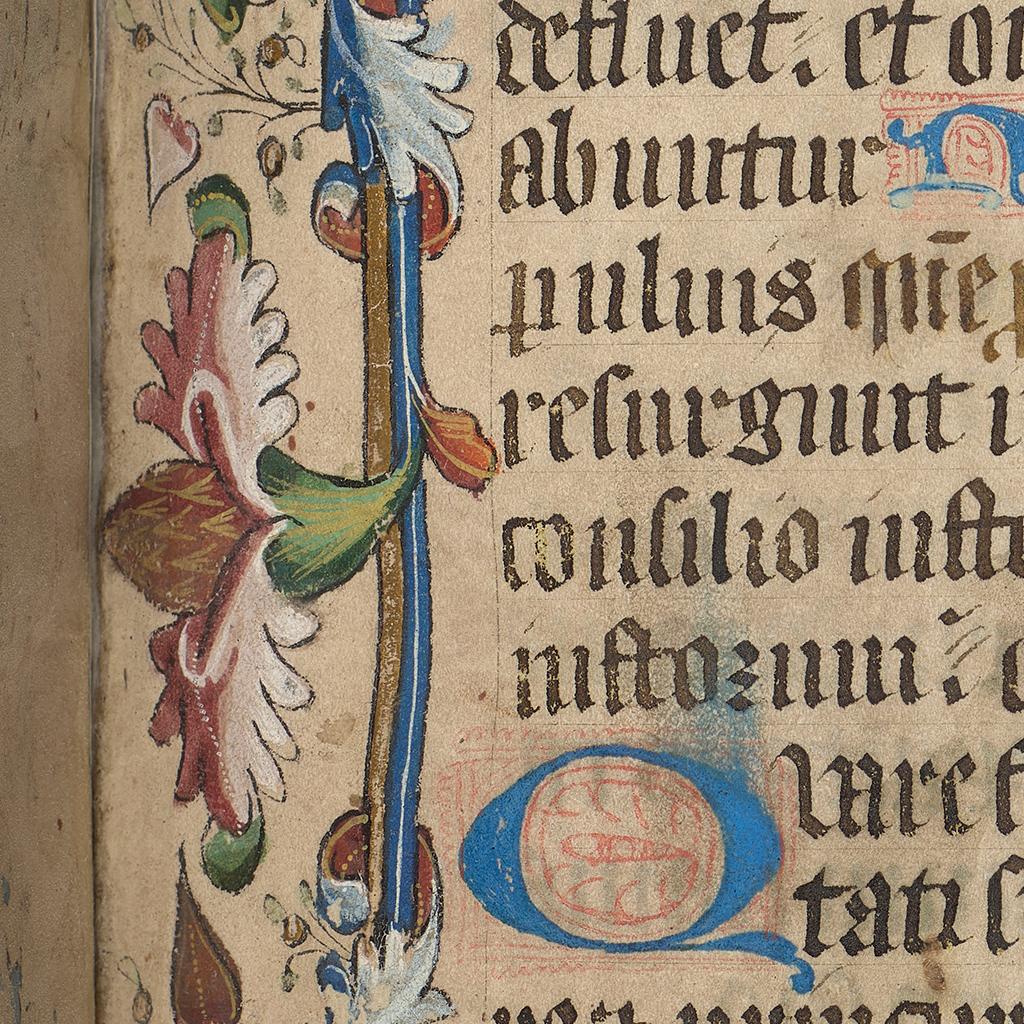 defluet. et om
abuntur N
puluis quē p
resurgunt i
consilio iusto
iustorum: Q
Quare f
tati s